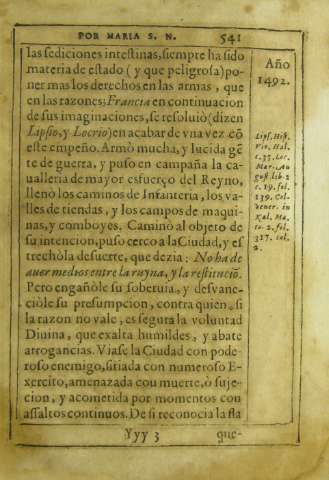 POR MARIA S. N. 541
las sediciones intestinas, siempre ha sido
materia de estado (y que peligrosa) po-
ner mas los derechos en las armas, que
en las razones; Francia en continuacion
de sus imaginaciones, se resoluiò (dizen
Lipsio, y Locrio) en acabar de vna vez cō
este empeño. Armò mucha, y lucida gē
te de guerra, y puso en campaña la ca-
ualleria de mayor esfuerço del Reyno,
llenò los caminos de Infanteria, los va-
lles de tiendas, y los campos de maqui-
nas, y comboyes. Caminò al objeto de
su intencion, puso cerco a la Ciudad, y es
trechòla de suerte, que dezia: No ha de
auer medios entre la ruyna, y la restituciō.
Pero engañòle su soberuia, y desvane-
ciòle su presumpcion, contra quien, si
la razon no vale, es segura la voluntad
Diuina, que exalta humildes, y abate
arrogancias. Viase la Ciudad con pode-
roso enemigo, sitiada con numeroso E-
xercito, amenazada cou muerte, ò suje-
cion, y acometida por momentos con
assaltos continuos. De si reconocia la fla
Yyy 3 que-
Año
1492.
Lips. Hist.
Vir. Hal.
c. 35. Loc.
Mari. Au
gust. lib. 2
c. 19. fol.
239. Col-
uener. in
Kal. Ma.
to. 2. fol.
317. col.
2.